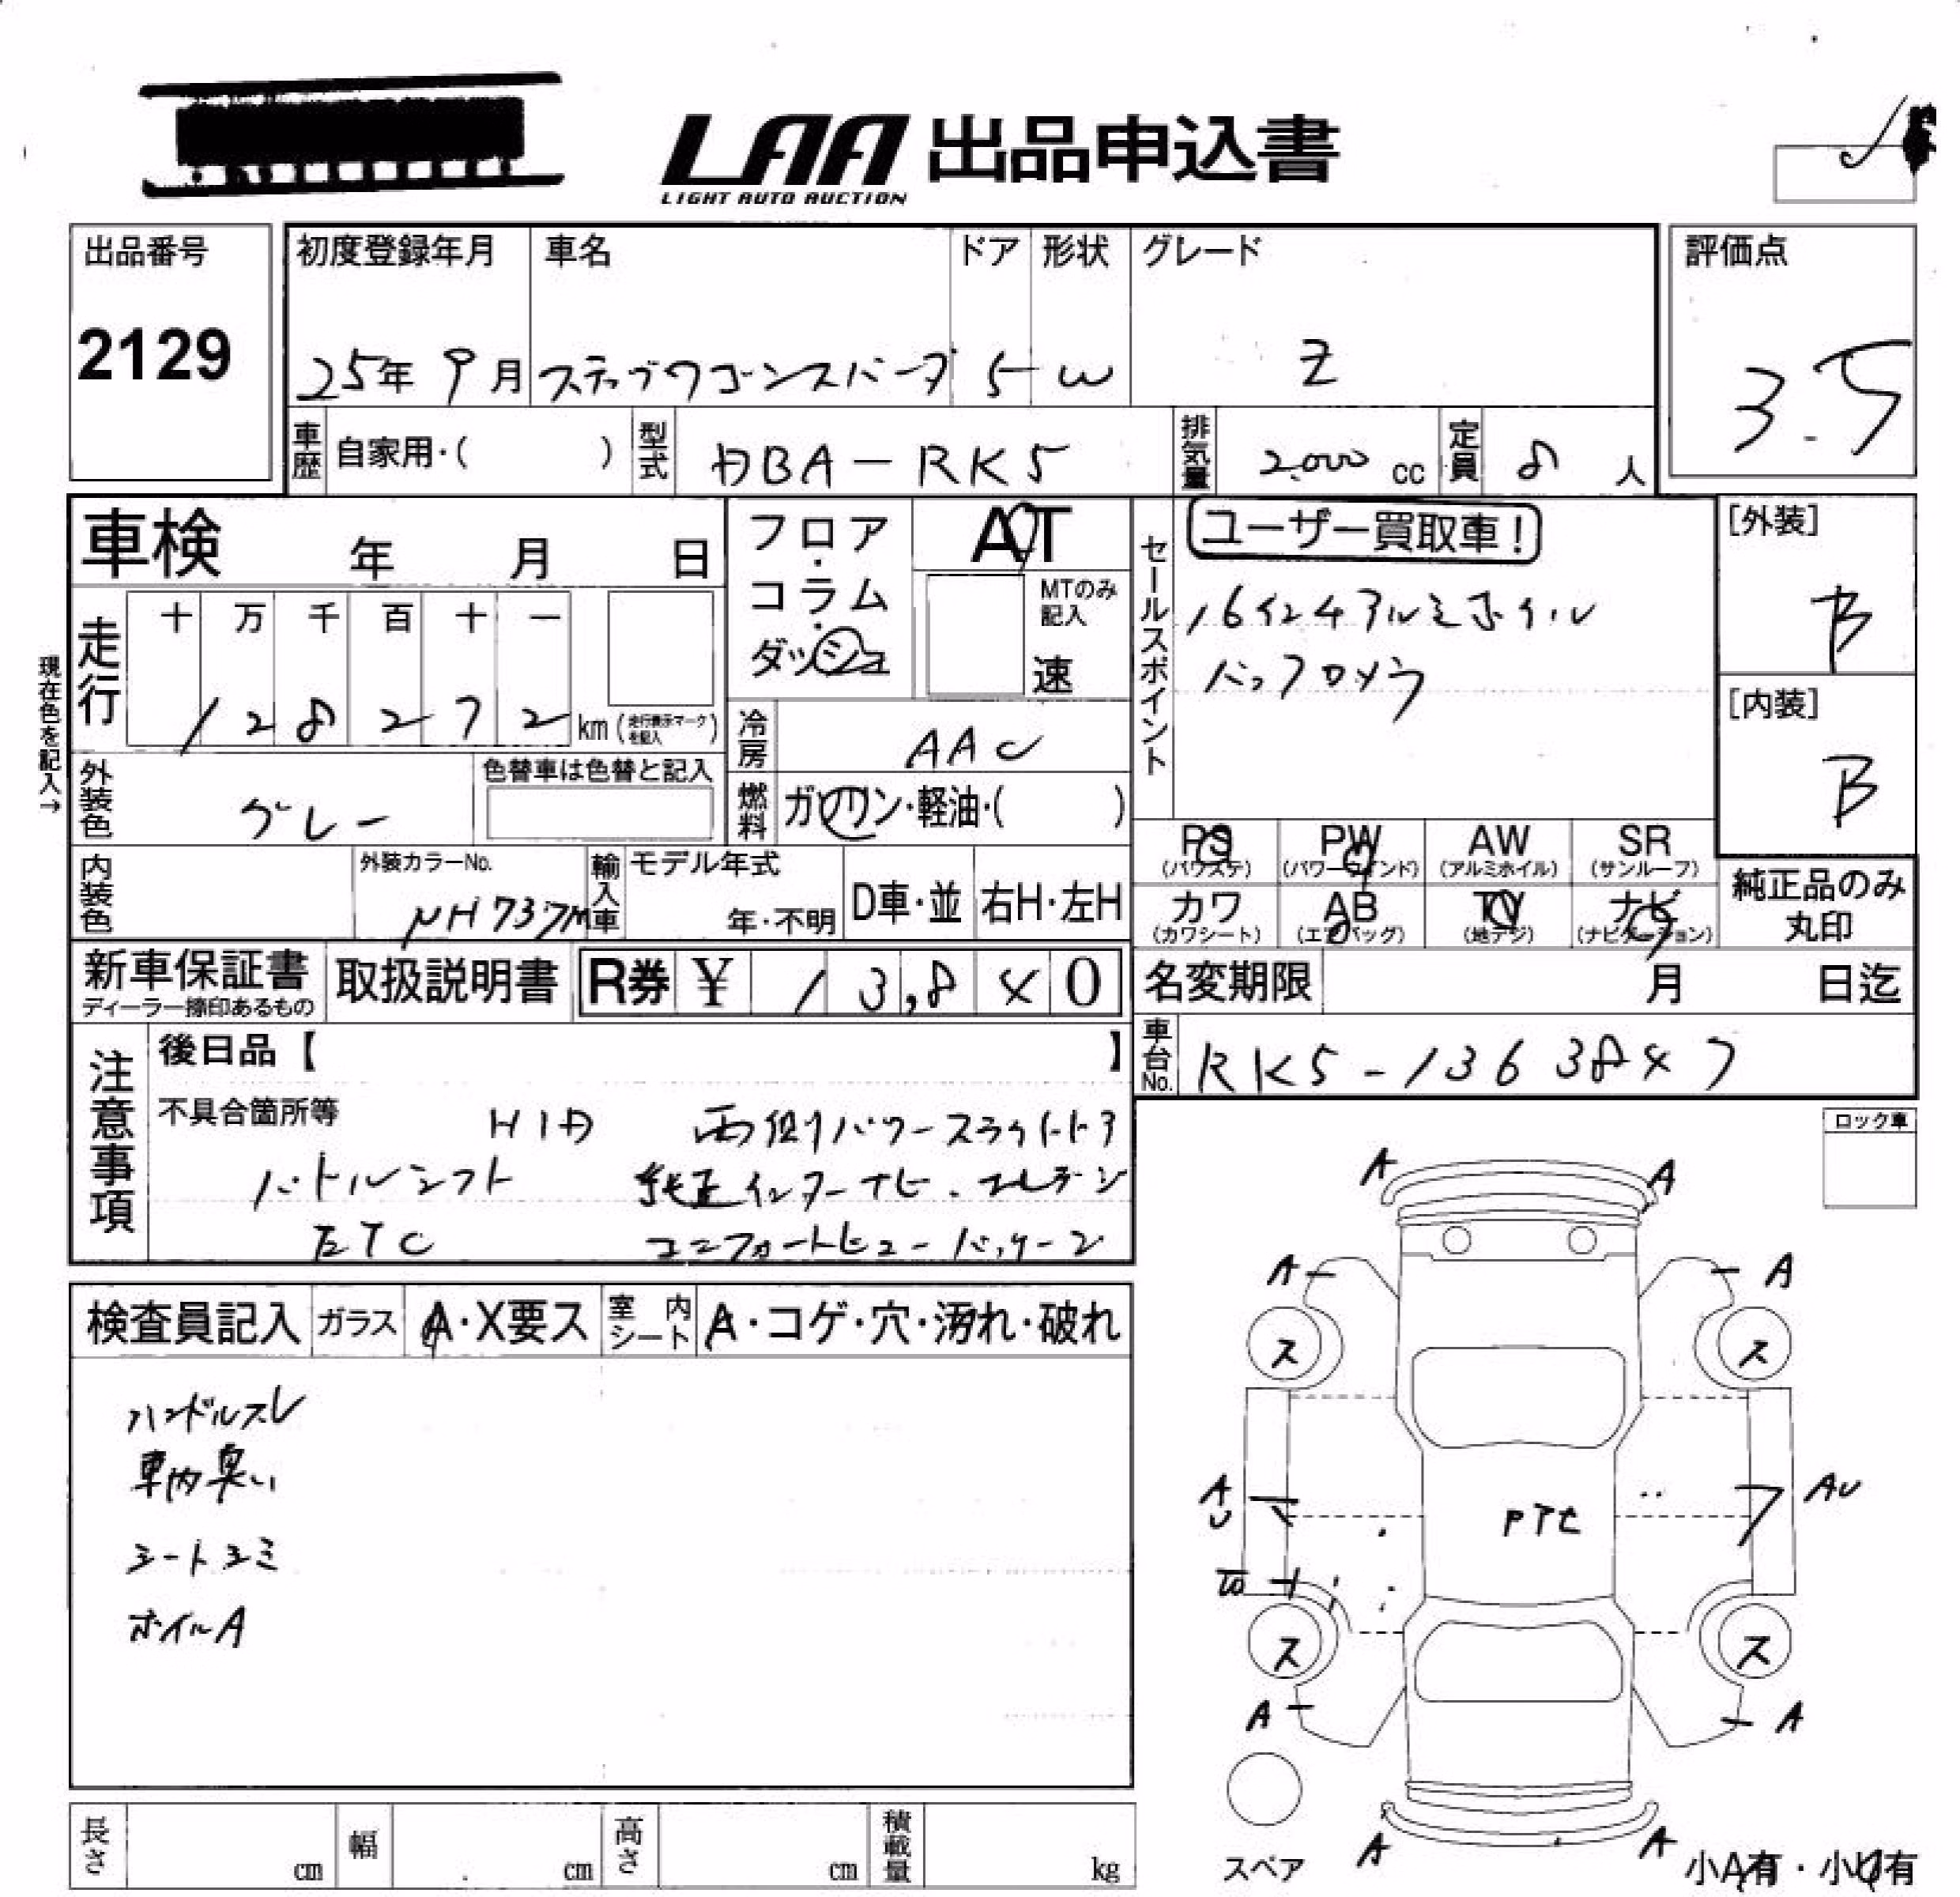 LAA 出品申込書
LIGHT AUTO AUCTION
出品番号
2129
初度登録年月 車名 ドア 形状 グレード
25年 9月 ステップワゴンスパーダ 5 W Z
評価点
3.5
車歴 自家用・( ) 型式 DBA-RK5 排気量 2000 cc 定員 8 人
車検 年 月 日
フロア・コラム・ダッシュ
AT
MTのみ記入
速
現在色を記入→
走行 十 万 千 百 十 一
1 2 8 2 7 2 km (走行表示マークを記入)
冷房 AAC
外装色 グレー
色替車は色替と記入
燃料 ガソリン・軽油・( )
セールスポイント
ユーザー買取車!
16インチアルミホイル
バックカメラ
[外装]
B
[内装]
B
PS (パワステ) PW (パワーウインド) AW (アルミホイル) SR (サンルーフ)
カワ (カワシート) AB (エアバッグ) TV (地デジ) ナビ (ナビゲーション)
純正品のみ丸印
内装色 外装カラーNo. NH737M
輸入車 モデル年式 年・不明 D車・並 右H・左H
新車保証書 ディーラー捺印あるもの 取扱説明書 R券 ¥ 13,840
名変期限 月 日迄
車台No. RK5-1363847
注意事項
後日品【 】
不具合箇所等 HID 両側パワースライドドア
パドルシフト 純正インターナビ・
ETC コンフォートビューパッケージ
検査員記入 ガラス A・X要ス 室内シート A・コゲ・穴・汚れ・破れ
ハンドルスレ
車内臭い
シートシミ
ホイルA
ロック車
A A
A A
ス ス
AU AU
PTC
ス ス
A A
A A
スペア
小A有・小U有
長さ cm 幅 cm 高さ cm 積載量 kg